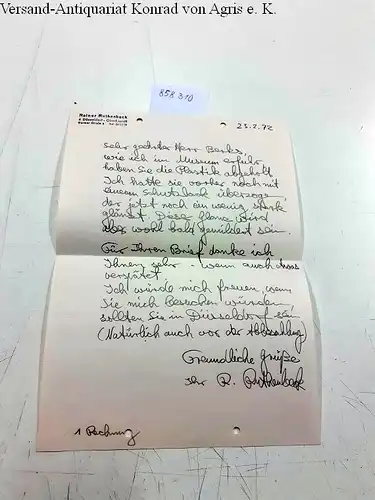 Versand-Antiquariat Konrad von Agris e. K.
858 310
Reiner Ruthenbeck
4 Düsseldorf
25.2.72
Sehr geehrter Herr
wie ich im Museum erfuhr
haben Sie die Plastik abgeholt
Ich hatte sie vorher noch mit
einem Schutzlack überzogen,
der jetzt noch ein wenig stark
glänzt. Diese wird
aber wohl bald gemildert sein.
Für Ihren Brief danke ich
Ihnen sehr - wenn auch etwas
verspätet.
Ich würde mich freuen, wenn
Sie mich besuchen würden,
sollten Sie in Düsseldorf sein
(Natürlich auch vor der Abzahlung)
Freundliche Grüße
Ihr R. Ruthenbeck
1 Rechnung